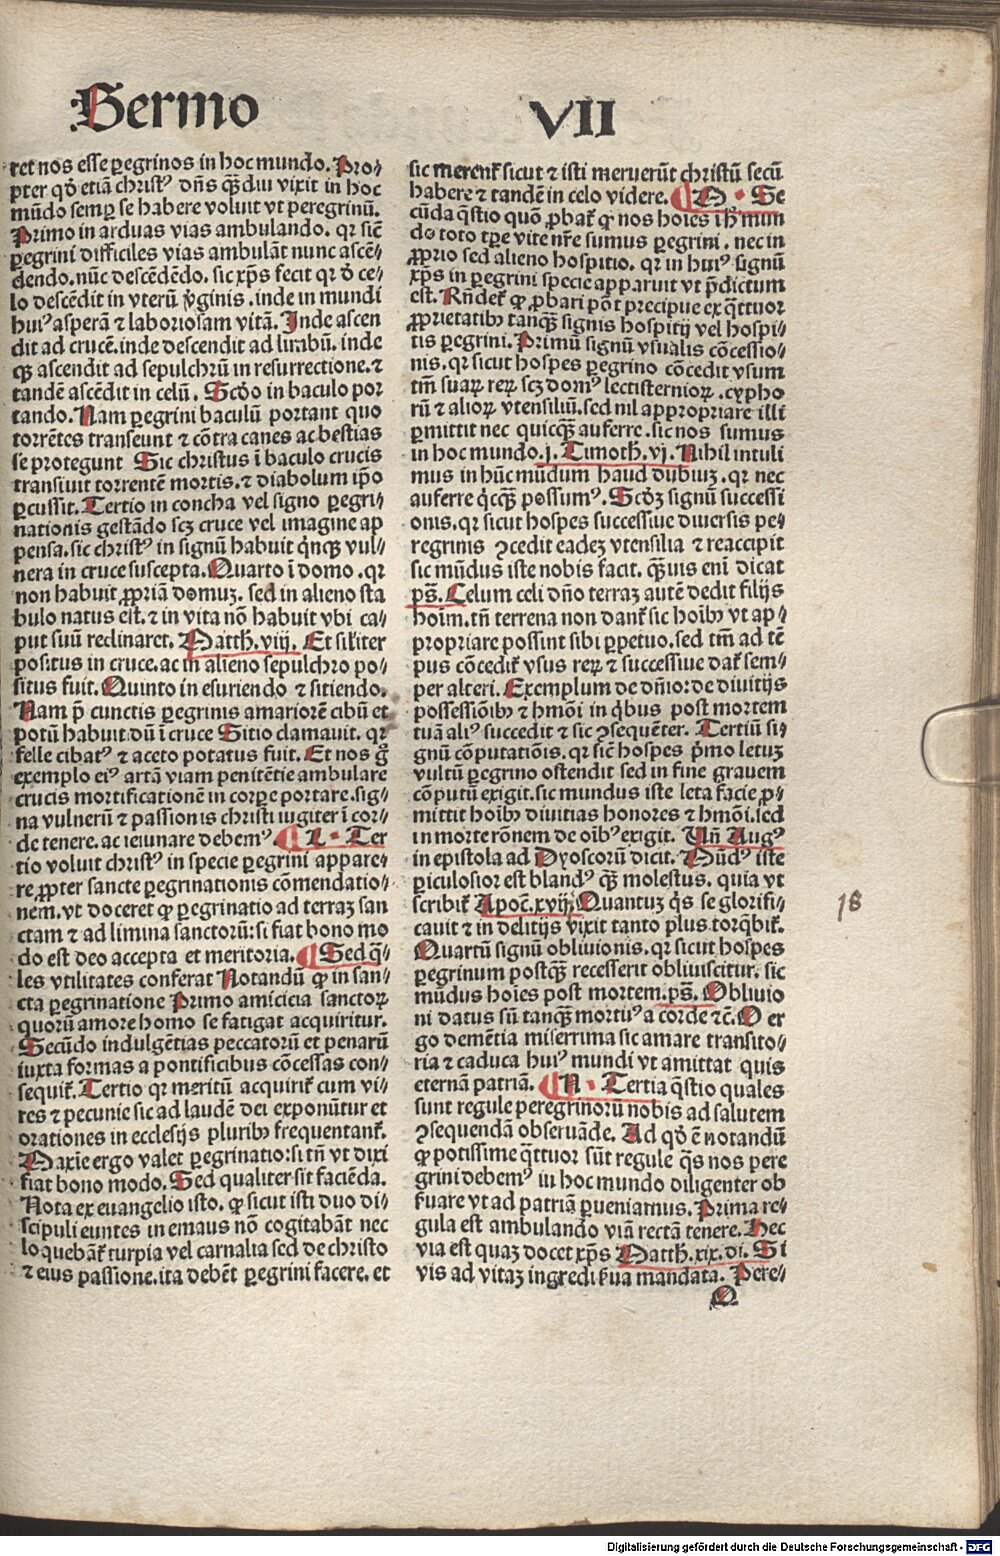 Sermo VII
ret nos esse ꝑegrinos in hoc mundo. Pro⸗
pter qḋ etiā christꝰ dñs qꝫ̄diu vixit in hoc
mūdo semꝑ se habere voluit vt peregrinū.
Primo in arduas vias ambulando. qꝛ sic̄
ꝑegrini difficiles vias ambulāt nunc ascē⸗
dendo. nūc descēdēdo. sic xp̄s fecit qꝛ ḋ ce⸗
lo descēdit in vterū ꝟginis. inde in mundi
huiꝰ asperā ⁊ laboriosam vitā. Inde ascen
dit ad crucē. inde descendit ad limbū. inde
qꝫ ascendit ad sepulchrū in resurrectione. ⁊
tandē ascēdit in celū. Scḋo in baculo por
tando. Nam ꝑegrini baculū portant quo
torrētes transeunt ⁊ cōtra canes ac bestias
se protegunt Sic christus ī baculo crucis
transiuit torrentē mortis. ⁊ diabolum ip̄o
ꝑcussit. Tertio in concha vel signo ꝑegri⸗
nationis gestādo scꝫ cruce vel imagine ap
pensa. sic christꝰ in signū habuit qͥnqꝫ vul⸗
nera in cruce suscepta. Quarto ī domo. qꝛ
non habuit ꝓpriā domuꝫ. sed in alieno sta
bulo natus est. ⁊ in vita nō habuit vbi ca⸗
put suū reclinaret. Matth. viij. Et sil̄iter
positus in cruce. ac in alieno sepulchro po⸗
situs fuit. Quinto in esuriendo ⁊ sitiendo.
Nam p̄ cunctis ꝑegrinis amariorē cibū et
potū habuit dū ī cruce Sitio clamauit. qꝛ
felle cibatꝰ ⁊ aceto potatus fuit. Et nos gͦ
exemplo eiꝰ artā viam penitētie ambulare
crucis mortificationē in corꝑe portare. sig⸗
na vulnerū ⁊ passionis christi iugiter ī cor⸗
de tenere. ac ieiunare debemꝰ. L. Ter
tio voluit christꝰ in specie ꝑegrini appare⸗
re ꝓpter sancte ꝑegrinationis cōmendatio⸗
nem. vt doceret ꝙ ꝑegrinatio ad terraꝫ san
ctam ⁊ ad limina sanctorū: si fiat bono mo
do est deo accepta et meritoria. Sed q̄⸗
les vtilitates conferat Notandū ꝙ in san⸗
cta ꝑegrinatione Primo amicicia sanctoꝝ
quorū amore homo se fatigat acquiritur.
Secūdo indulgētias peccatorū et penarū
iuxta formas a pontificibus cōcessas con⸗
sequit᷑. Tertio qꝛ meritū acquirit᷑ cum vi⸗
res ⁊ pecunie sic ad laudē dei exponūtur et
orationes in ecclesijs pluribꝰ frequentant᷑.
Maxīe ergo valet ꝑegrinatio: si tn̄ vt dixi
fiat bono modo. Sed qualiter sit faciēda.
Nota ex euangelio isto. ꝙ sicut isti duo di⸗
scipuli euntes in emaus nō cogitabāt nec
loquebāt᷑ turpia vel carnalia sed de christo
⁊ eius passione. ita debēt ꝑegrini facere. et
sic merent᷑ sicut ⁊ isti meruerūt christū secū
habere ⁊ tandē in celo videre. M. Se
cūda q̄stio quō ꝓbat᷑ ꝙ nos hoīes ī hͦ mun
do toto tꝑe vite nr̄e sumus ꝑegrini. nec in
ꝓprio sed alieno hospitio. qꝛ in huiꝰ signū
xp̄s in ꝑegrini specie apparuit vt p̄dictum
est. Rn̄det᷑ ꝙ ꝓbari pōt precipue ex q̄ttuor
ꝓprietatibꝰ tanqꝫ̄ signis hospitij vel hospi⸗
tis ꝑegrini. Primū signū vsualis cōcessio⸗
nis. qꝛ sicut hospes ꝑegrino cōcedit vsum
tm̄ suaꝝ reꝝ scꝫ domꝰ lectisternioꝝ. cypho
rū ⁊ alioꝝ vtensiliū. sed nil appropriare illi
ꝑmittit nec quicqꝫ̄ auferre. sic nos sumus
in hoc mundo. j. Timoth. vj. Nihil intuli
mus in hūc mūdum haud dubiuꝫ. qꝛ nec
auferre qͥcqꝫ̄ possumꝰ. Scḋꝫ signū successi
onis. qꝛ sicut hospes successiue diuersis pe⸗
regrinis ꝯcedit eadeꝫ vtensilia ⁊ reaccipit
sic mūdus iste nobis facit. qꝫ̄uis eni̅ dicat
ps̄. Celum celi dn̄o terraz autē dedit filijs
hoīm. tn̄ terrena non dant᷑ sic hoībꝰ vt ap⸗
propriare possint sibi ꝑpetuo. sed tm̄ ad tē
pus cōcedit᷑ vsus reꝝ ⁊ successiue dat᷑ sem⸗
per alteri. Exemplum de dn̄io: de diuitijs
possessiōibꝰ ⁊ hmōi in qͥbus post mortem
tuā aliꝰ succedit ⁊ sic ꝯsequēter. Tertiū si⸗
gnū cōputatiōis. qꝛ sic̄ hospes pͥmo letuꝫ
vultū ꝑegrino ostendit sed in fine grauem
cōputū exigit. sic mundus iste leta facie ꝓ⸗
mittit hoībꝰ diuitias honores ⁊ hmōi. sed
in morte rōnem de oībꝰ exigit. Vn̄ Augꝰ
in epistola ad Dyoscorū dicit. Mūdꝰ iste
ꝑiculosior est blandꝰ qꝫ̄ molestus. quia vt
scribit᷑ Apoc̄. xviij. Quantuꝫ qͥs se glorifi⸗
cauit ⁊ in delitijs vixit tanto plus torqͣbit᷑.
Quartū signū obliuionis. qꝛ sicut hospes
ꝑegrinum postqꝫ̄ recesserit obliuiscitur. sic
mūdus hoīes post mortem. ps̄. Obliuio
ni datus sū tanqꝫ̄ mortuꝰ a corde ⁊c̄. O er
go demētia miserrima sic amare transito⸗
ria ⁊ caduca huiꝰ mundi vt amittat quis
eternā patriā. N. Tertia q̄stio quales
sunt regule peregrinorū nobis ad salutem
ꝯsequendā obseruāde. Ad qḋ ē notandū
ꝙ potissime q̄ttuor sūt regule qͣs nos pere
grini debemꝰ in hoc mundo diligenter ob
ẜuare vt ad patriā ꝑueniamus. Prima re⸗
gula est ambulando viā rectā tenere. Hec
via est quaꝫ docet xp̄s Matth. xix. di. Si
vis ad vitaꝫ ingredi ẜua mandata. Pere⸗
18
Digitalisierung gefördert durch die Deutsche Forschungsgemeinschaft - DFG